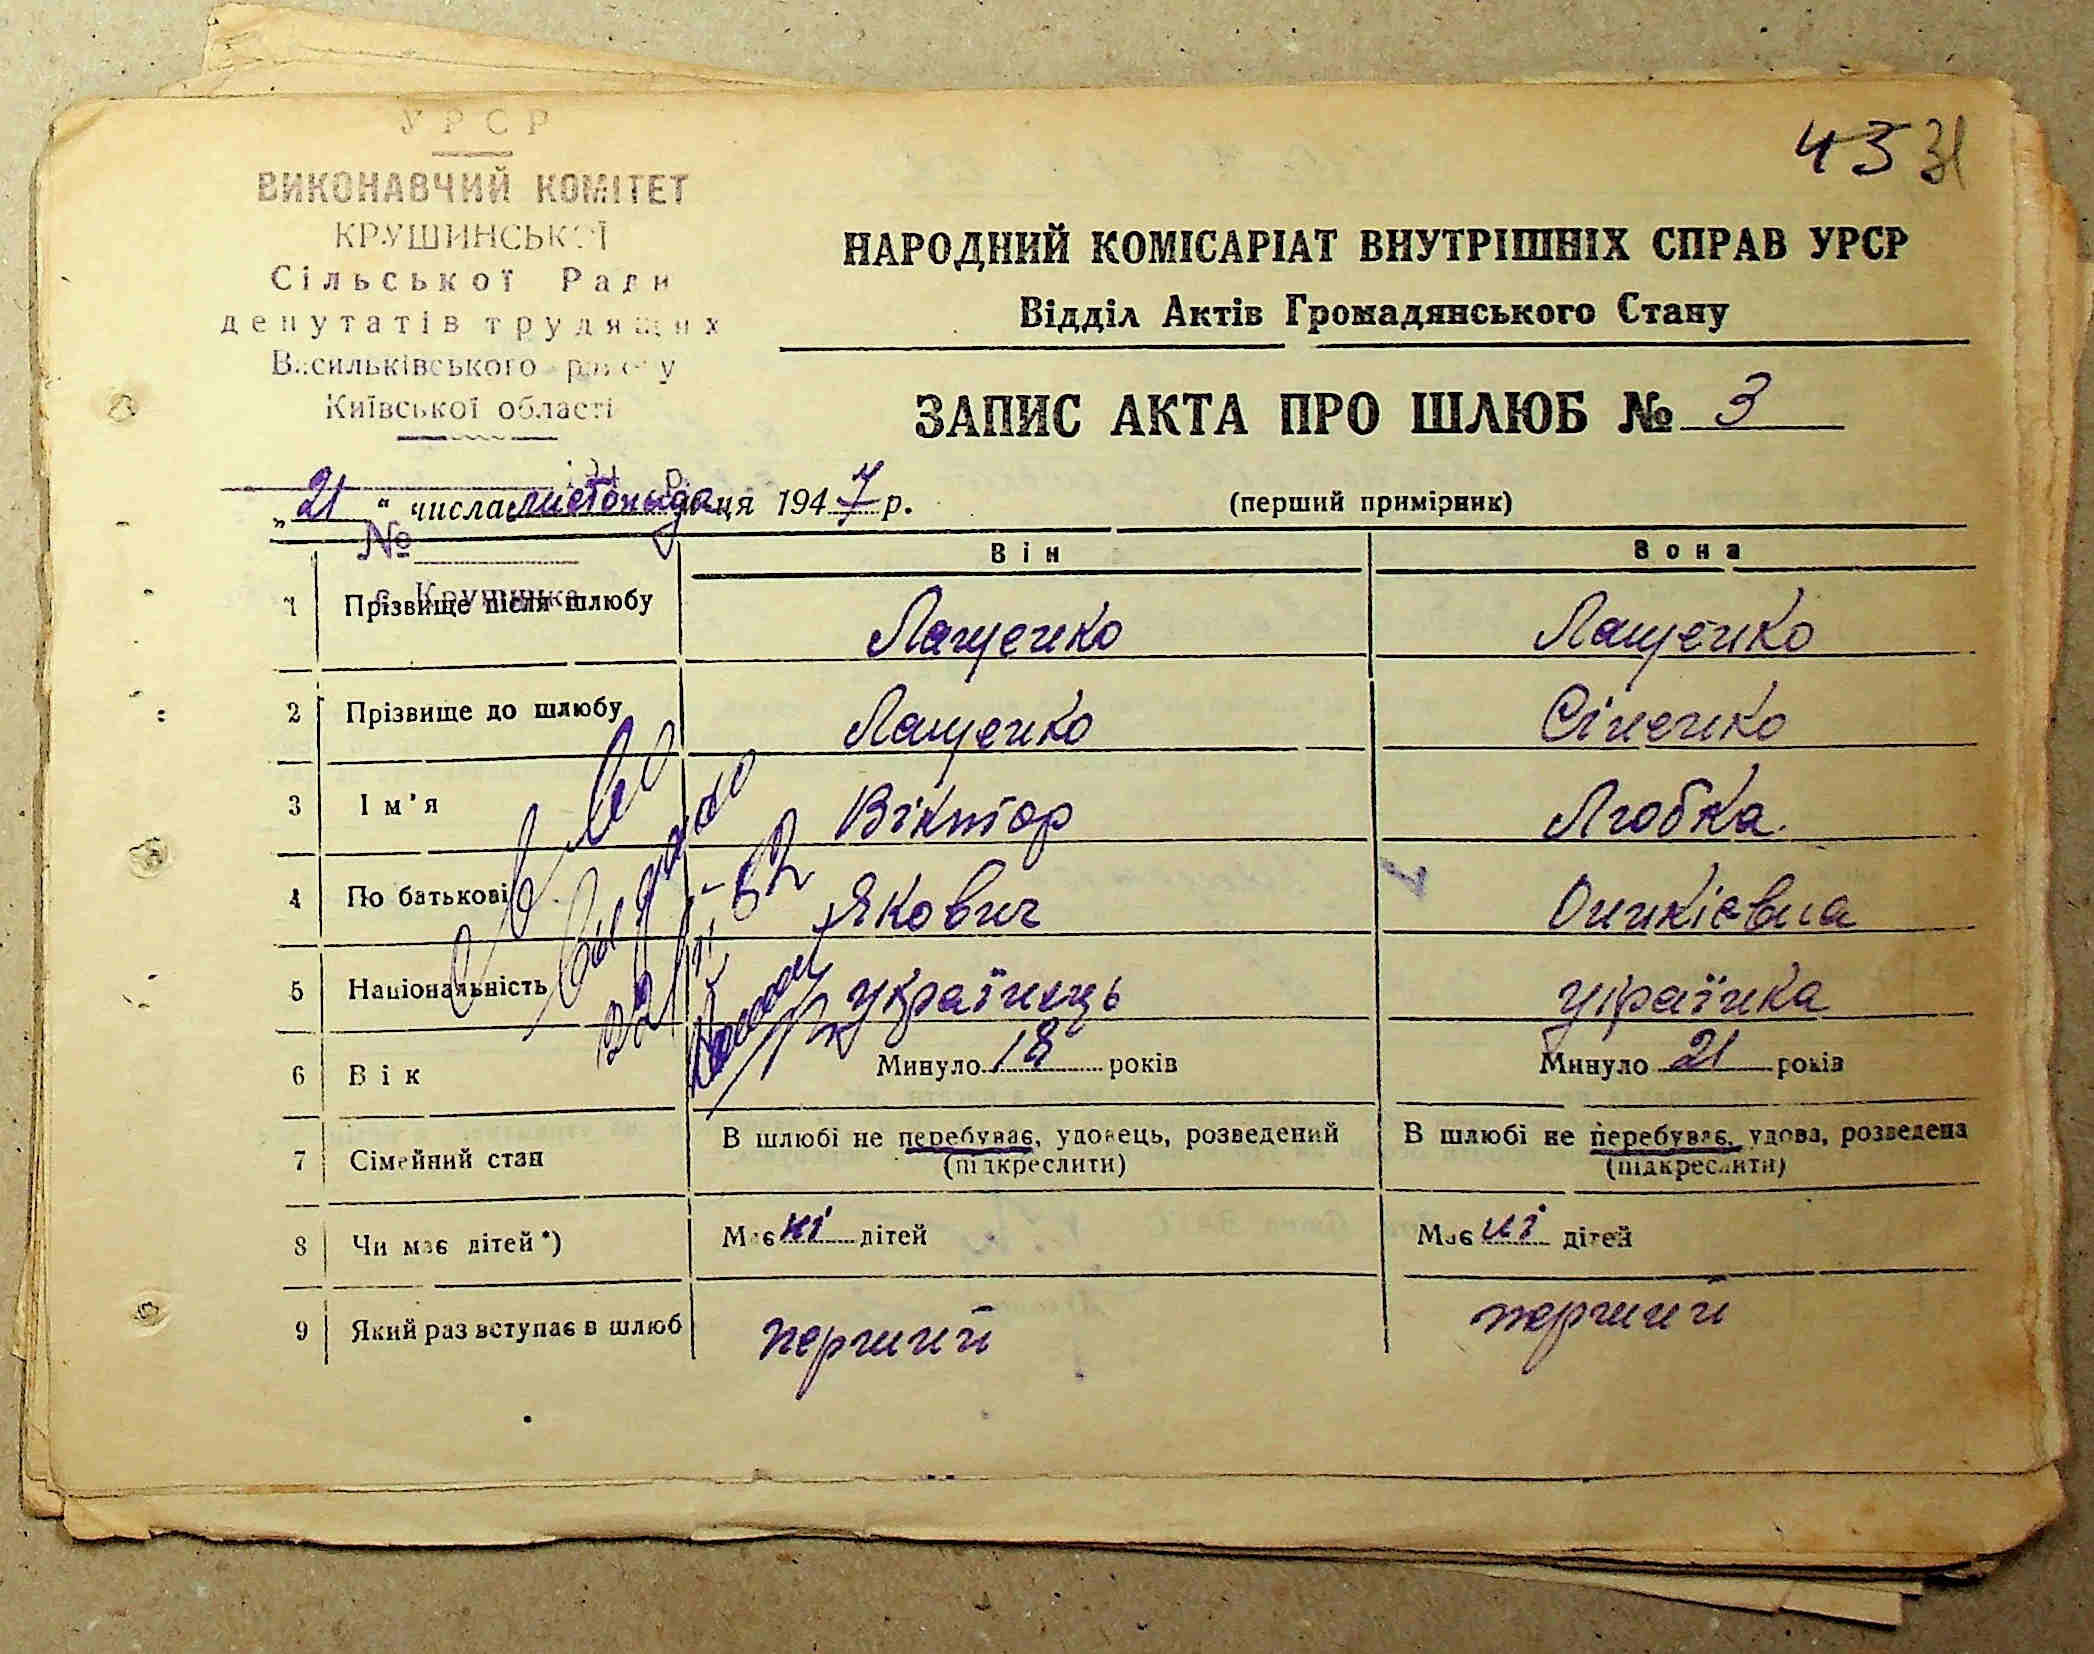 УРСР
ВИКОНАВЧИЙ КОМІТЕТ
КРУШИНСЬКОЇ
Сільської Ради
депутатів трудящих
Васильківського району
Київської області
43 31
НАРОДНИЙ КОМІСАРІАТ ВНУТРІШНІХ СПРАВ УРСР
Відділ Актів Громадянського Стану
ЗАПИС АКТА ПРО ШЛЮБ № 3
„21“ числа листопада місяця 1947 р.
(перший примірник)
№
с. Крушинка
Він
Вона
1 Прізвище після шлюбу Лащенко Лащенко
2 Прізвище до шлюбу Лащенко Сіненко
3 Ім'я Віктор Любка.
4 По батькові Якович
5 Національність українець українка
6 Вік Минуло 18 років Минуло 21 років
7 Сімейний стан В шлюбі не перебуває, удовець, розведений (підкреслити) В шлюбі не перебуває, удова, розведена (підкреслити)
8 Чи має дітей*) Має ні дітей Має ні дітей
9 Який раз вступає в шлюб перший перший